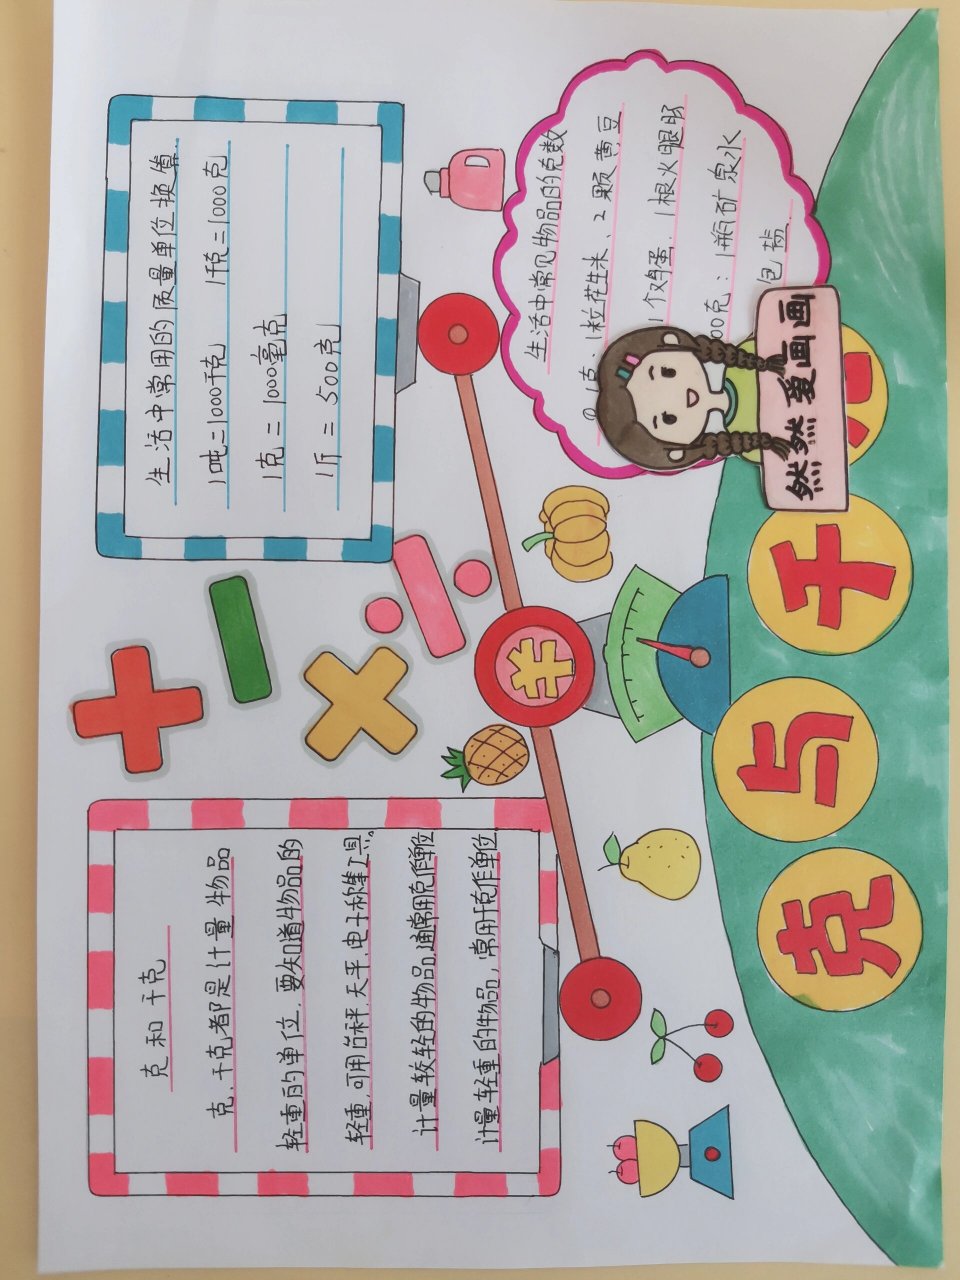 克和千克
克、千克都是计量物品
轻重的单位，要知道物品的
轻重，可用台秤、天平、电子称等工具。
计量较轻的物品，通常用克作单位
计量轻重的物品，常用千克作单位
生活中常用的质量单位换算
1吨=1000千克 1千克=1000克
1克=1000毫克
1斤=500克
生活中常见物品的克数
1克：1粒花生米、2颗黄豆
1个鸡蛋、1根火腿肠
00克：1瓶矿泉水
包盐
¥
克与千
然然爱画画